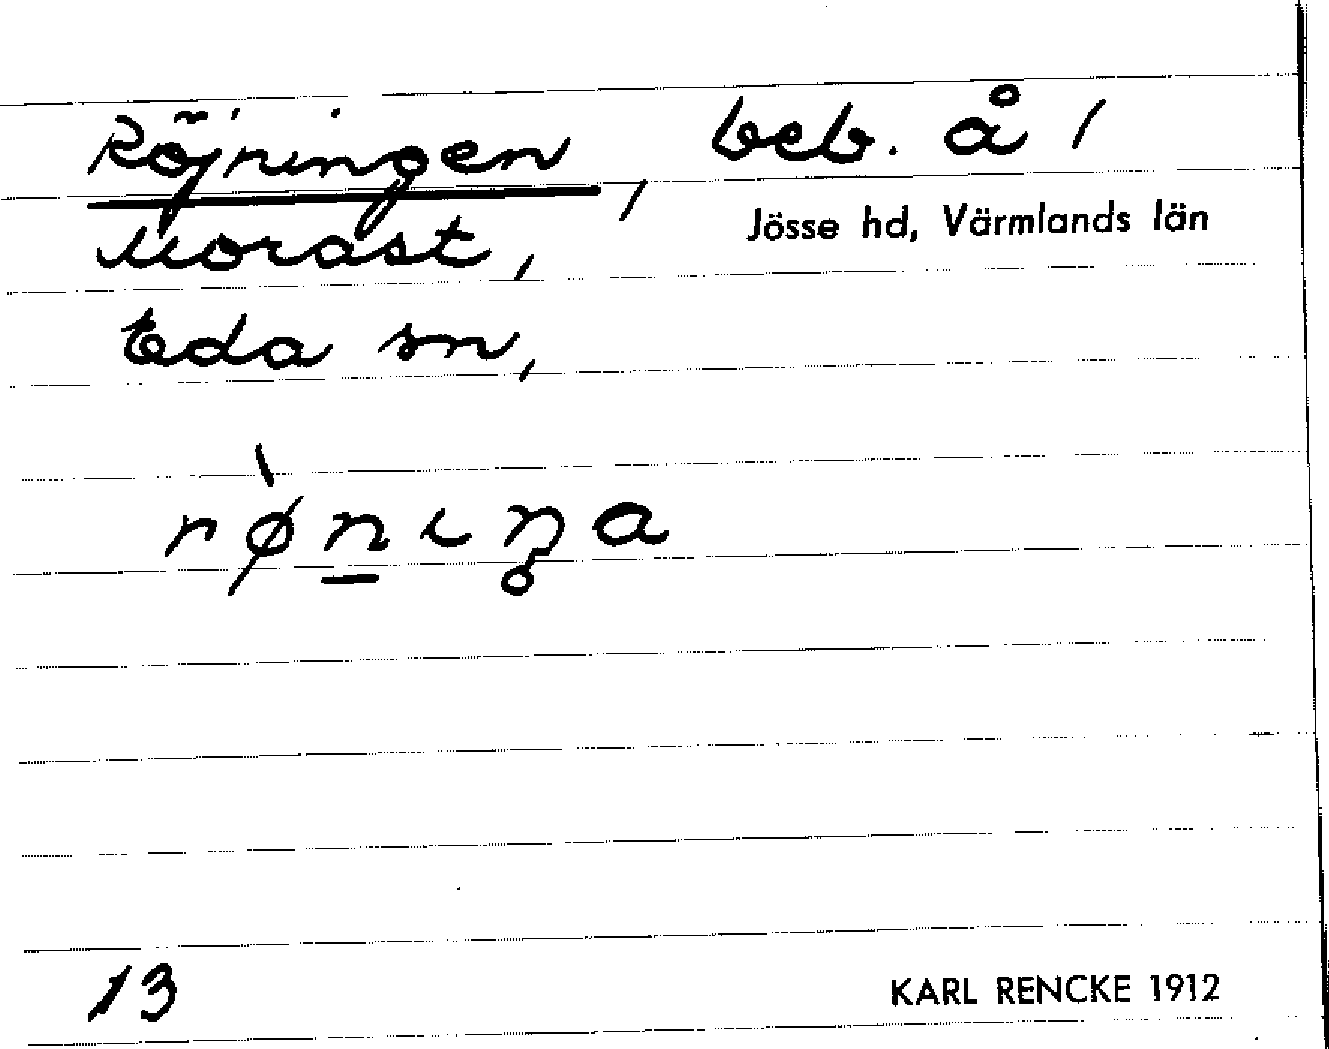 Röjningen, beb. å 1
Jösse hd, Värmlands län
Morast,
Eda sn,
rø̀n̲ıŋa
13
KARL RENCKE 1912